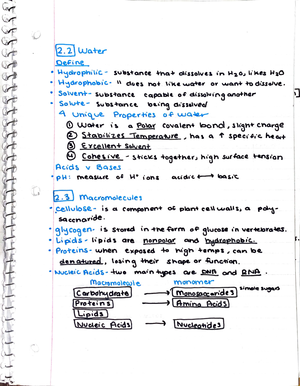 2.2 Water
Define
• Hydrophilic - substance that dissolves in H2O, likes H2O
• Hydrophobic - " does not like water or want to dissolve.
• Solvent - substance capable of dissolving another
• Solute - substance being dissolved
4 Unique Properties of Water
① Water is a Polar covalent bond, slight charge
② Stabilizes Temperature, has a ↑ specific heat
③ Excellent Solvent
④ Cohesive - sticks together, high surface tension
Acids v Bases
• pH: measure of H+ ions acidic ⟷ basic
2.3 Macromolecules
• Cellulose - is a component of plant cell walls, a poly-
saccharide.
• glycogen - is stored in the form of glucose in vertebrates.
• Lipids - lipids are nonpolar and hydrophobic.
• Proteins - when exposed to high temps, can be
denatured, losing their shape or function.
• Nucleic Acids - two main types are DNA and RNA.
Macromolecule monomer
Carbohydrate → Monosaccharides simple sugars
Proteins → Amino Acids
Lipids
Nucleic Acids → Nucleotides